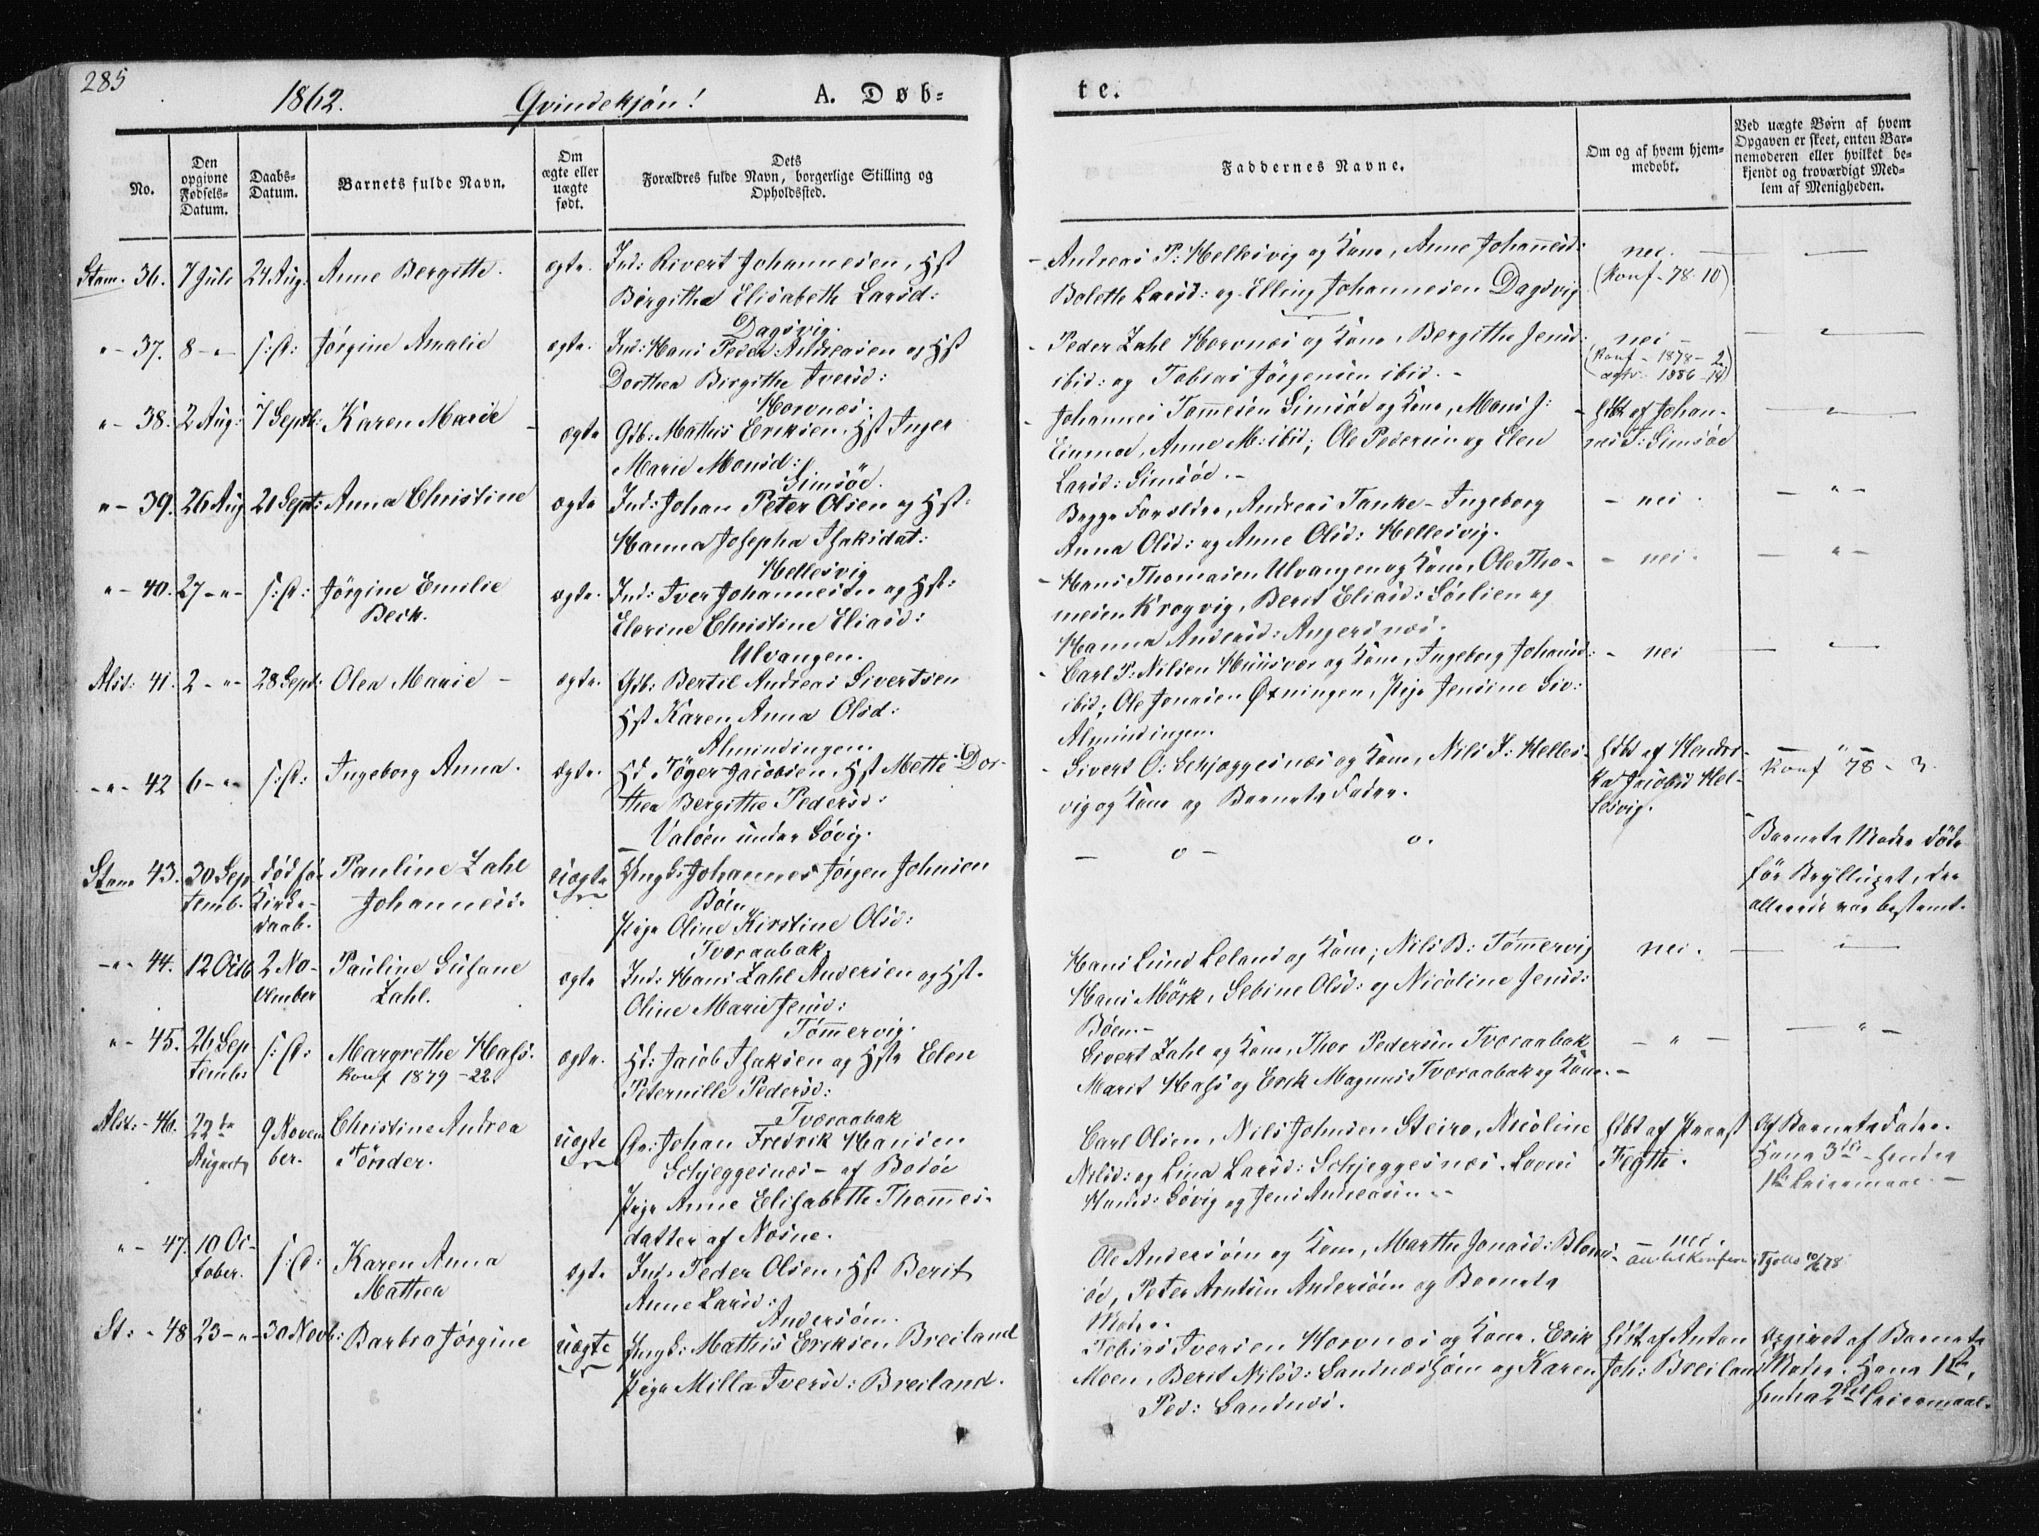 285
1862. Qvindekjøn! A. Døb-
te.
No.
Den opgivne Fødsels-Datum.
Daabs-Datum.
Barnets fulde Navn.
Om ægte eller uægte født.
Dets Forældres fulde Navn, borgerlige Stilling og Opholdssted.
Faddernes Navne.
Om og af hvem hjem-medøbt.
Ved uægte Børn af hvem Opgaven er skeet, enten Bar-nemoderen eller hvilket be-kjendt og troværdigt Med-lem af Menigheden.
Stam. 36. 7 Juli 24 Aug: Anne Bergitte. ægte. Ind: Rivert Johannesen, Hst
Birgitha Elisabeth Larsd:
Dagsvig.
- Andreas P: Hellesvig og Kone, Anne Johannesd:
Bolette Larsd: og Elling Johannesen Dagsvig
nei. —
(Konf - 78 10)
" - 37. 8 - " s: D: Jørgine Amalie ægte. Ind: Hans Peder Andreasen og Hst
Dorthea Birgithe Iversd:
Horvnæs.
- Peder Zahl Horvnæs og Kone, Bergithe Jensd:
ibid: og Tobias Jørgensen ibid. -
nei -
(Konf - 1878 - 2
ægtv. 1886 - 14)
" - 38. 2 Aug: 7 Septb: Karen Marie - ægte Gdb: Mathis Eriksen, Hst Inger
Marie Monsd:
Simsöe.
- Johannes Tommesen Simsöe og Kone, Mons J:
Einmo, Anne M: ibid; Ole Pedersen og Elen
Larsd: Simsöe. -
hdbt af Johan-
nes T: Simsöe
" - 39. 26 Aug 21 Sept: Anna Christine ægte Ind: Johan Peter Olsen og Hst:
Hanna Josepha Isaksdat:
Hellesvig
Begge Forældre, Andreas Tanke - Ingeborg
Anna Olsd: og Anne Olsd: Hellesvig.
- nei. - " -
" - 40. 27 - " - s: D: Jørgine Emilie
Beck.
ægte. Ind: Iver Johannesen og Hst:
Elerine Christine Eliasd:
Ulvangen.
- Hans Thomasen Ulvangen og Kone, Ole Tho-
mesen Krogvig, Berit Eliasd: Sørlien og
Hanna Andersd: Angersnæs.
- nei. - " -
Alst: 41. 2 - " - 28 Sept: Olea Marie - ægte. Gdb: Bertil Andreas Sivertsen
Hst Karen Anna Olsd:
Almindingen.
- Carl P: Nilsen Huusvær og Kone, Ingeborg Johansd:
ibid; Ole Jonasen Øxningen, Pige Jensine Siv:
Almindingen.
- nei
- " - 42 6 - " - s: D: Ingeborg Anna. ægte. Hd Töger Jacobsen, Hst Mette Dor-
thea Bergitte Pedersd:
Valöen under Sövig.
- Sivert O: Schjeggesnæs og Kone, Nils J: Helles-
vig og Kone og Barnets Fader.
hdbt af Hendri-
ka Jacobsd Hel-
lesvig.
Konf 78 - 3.
Stam 43. 30 Sep
temb. død før
Kirke-
daab.
Pauline Zahl
Johannesd. uægte Ungk: Johannes Jörgen Johnsen
Böen
Pige Oline Kirstine Olsd:
Tveraabak
- o - o.
Barnets Moder døde
før Brylluppet, der
allerede var bestemt.
- " - 44. 12 Octb 2 No-
vember
Pauline Susane
Zahl.
ægte Ind: Hans Zahl Andersen og Hst.
Oline Marie Jensd:
Tömmervig.
Hans Lund Leland og Kone; Nils B: Tömmervig
Hans Mörk, Sebine Olsd: og Nicoline Jensd:
Böen. -
nei.
" - 45. 26 Sep
tembr s: D: Margrethe Hass.
Konf 1879 - 22.
ægte. Hd: Jacob Isaksen og Hst Elen
Peternille Pedersd:
Tveraabak
Sivert Zahl og Kone, Thor Pedersen Tveraabak
Marit Hass og Erik Magnus Tveraabak og Kone. -
- " - - " -
Alst: - 46. 22de
August 9 Novem
ber.
Christine Andrea
Tönder.
uægte Gr: Johan Fredrik Hansen
Schjeggesnæs - af Bodöe
Pige Anne Elisabeth Thommes-
datter af Næsne.
Carl Olsen, Nils Johnsen Steiro, Nicoline
Nilsd: og Lina Larsd: Schjeggesnæs. Lovise
Hansd: Sövig og Jens Andreasen. -
hdbt af Provst
Fegth.
Af Barnets Fader.
Hans 3die - hendes
1ste Leiermaal. -
" - 47. 10 Oc-
tober. s: D: Karen Anna
Mathea
ægte Ind: Peder Olsen, Hst Berit
Anne Larsd:
Andersöen.
Ole Andersöen og Kone, Marthe Jonasd: Bloms-
öe, Peter Arntsen Andersöen og Barnets
Moder.
nei.
Att til Konfirm. Tjøtta 10/6 78
St: - 48 23 - " - 30 Novb: Barbro Jörgine uægte Ungk: Mathis Eriksen Breiland
Pige Milla Iversd: Breiland.
Tobias Iversen Horvnæs og Kone, Erik
Moen, Berit Nilsd: Sandnæshjem og Karen
Ped: Sandnæs.
hdbt af Anton
Joh: Breiland
Opgivet af Barnets
Moder. Hans 1ste,
hendes 2det Leiermaal.